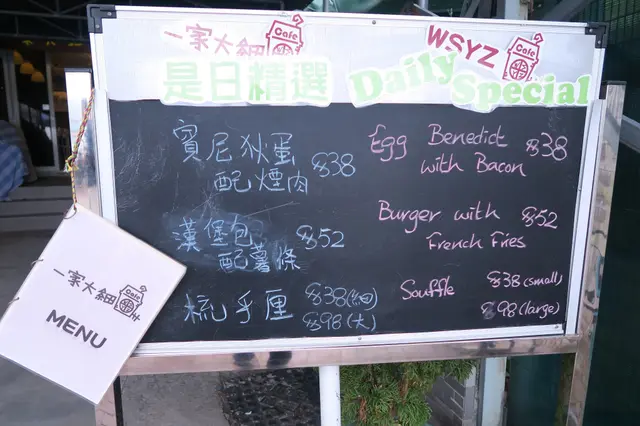 一家大細 Cafe
是日精選
WSYZ Cafe
Daily Special
賓尼狄蛋 $38
配煙肉
漢堡包 $52
配薯條
梳乎厘 $38(細)
$98(大)
Egg Benedict $38
with Bacon
Burger with $52
French Fries
Souffle $38(small)
$98(large)
一家大細 Cafe
MENU